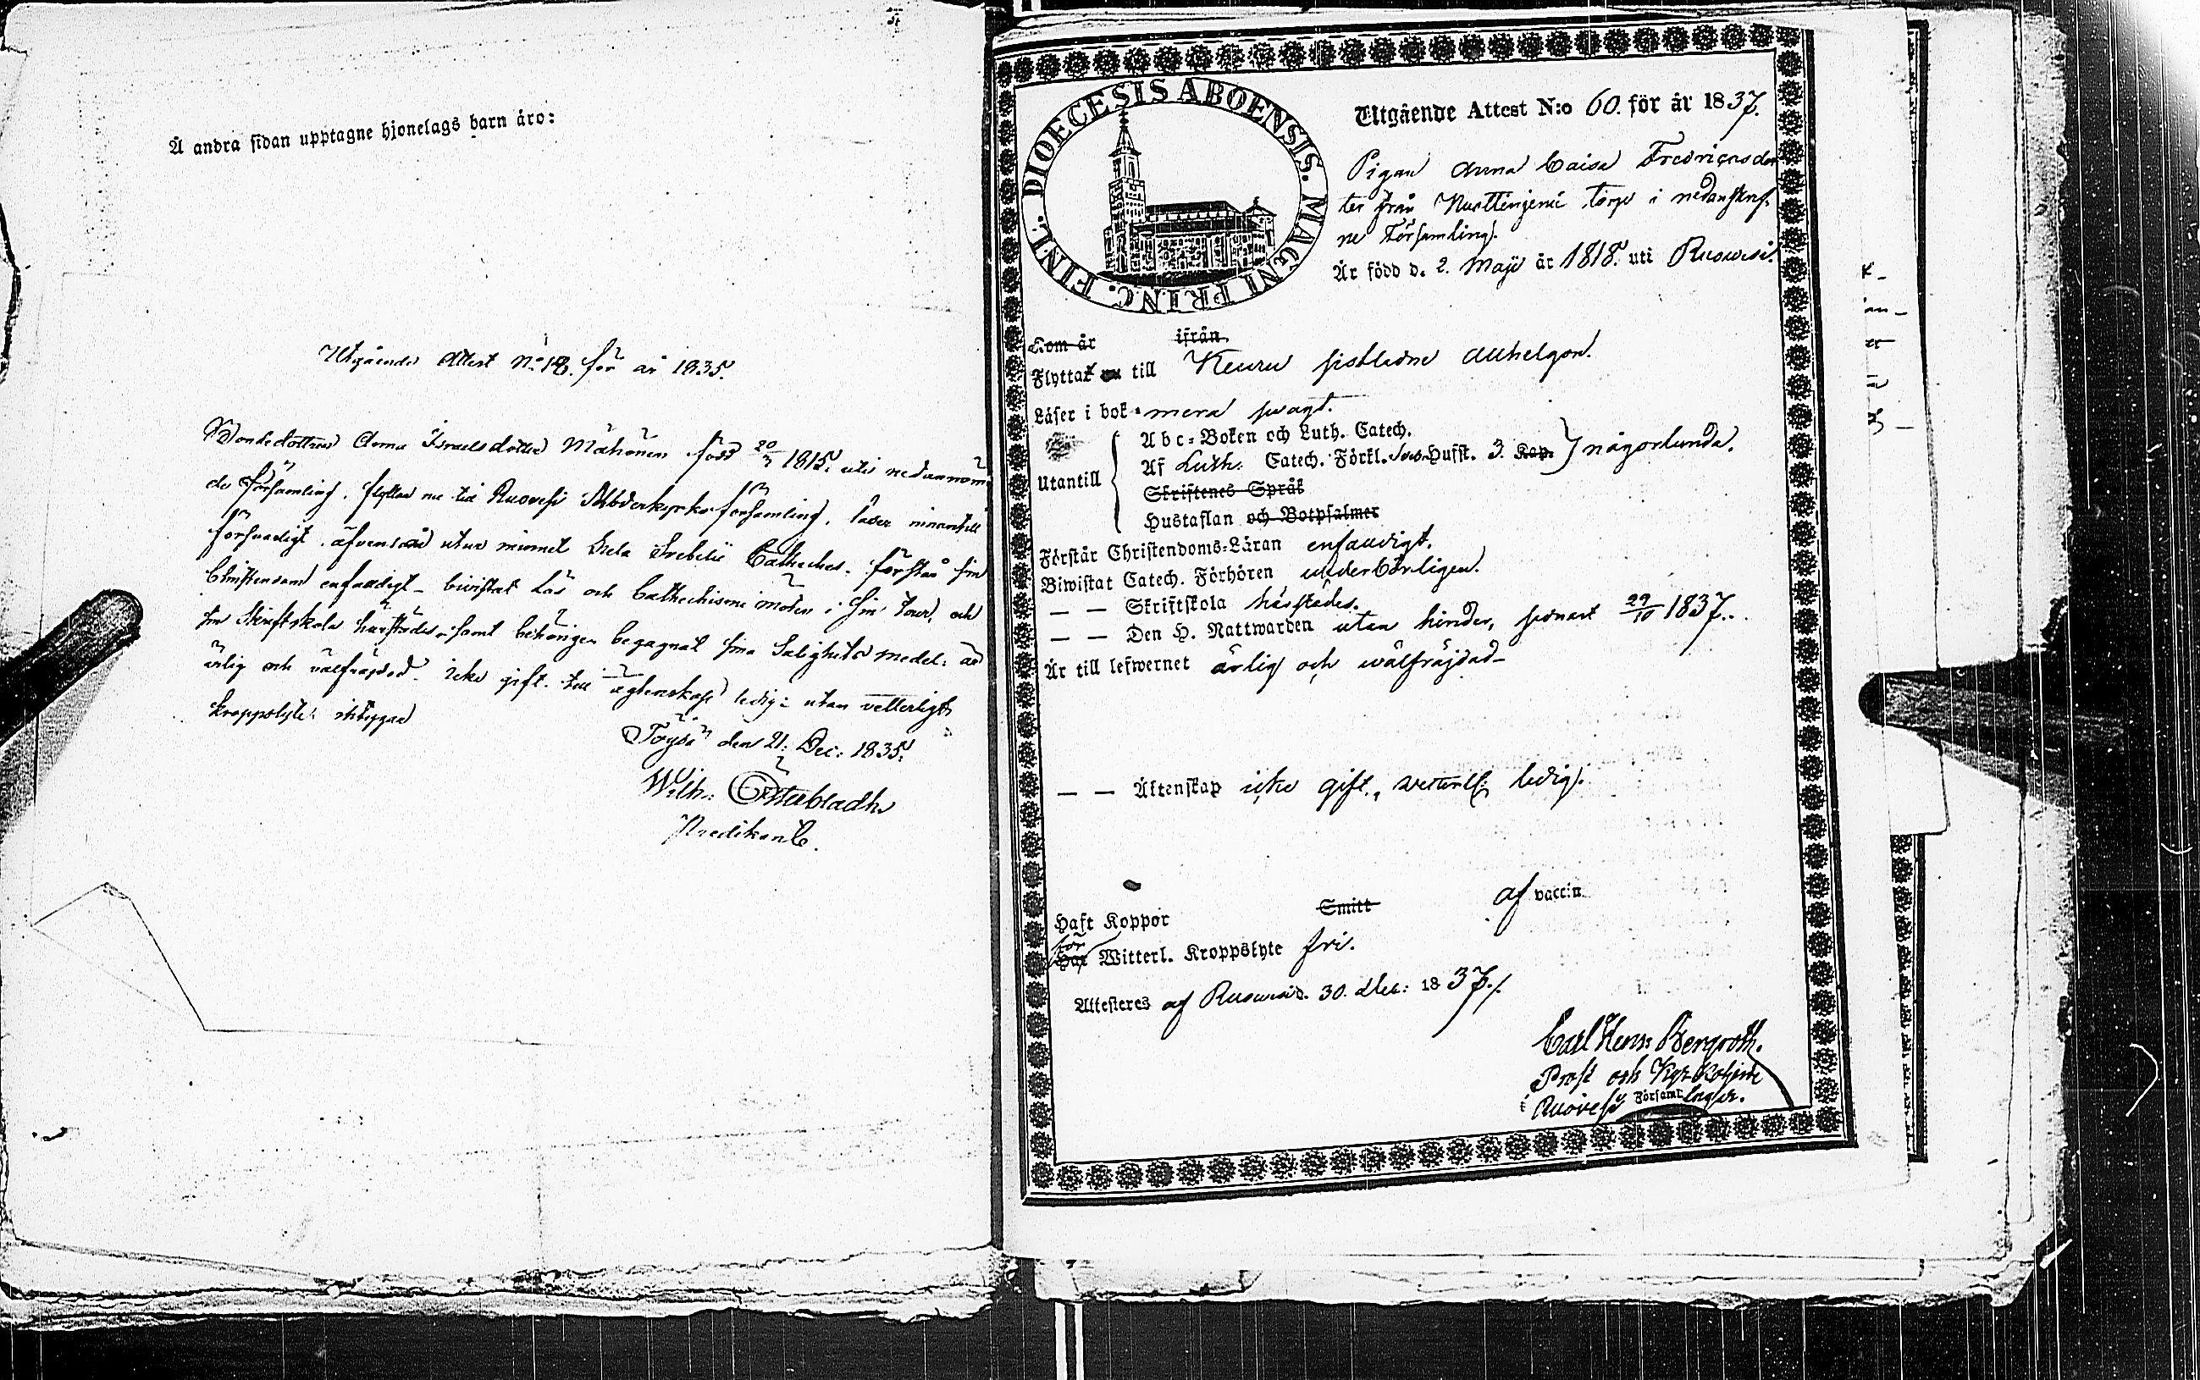 Å andra sidan upptagne hjonelags barn äro:
Utgående Attest No 18. för år 1835.
Bondedottren Anna Israelsdotter Mähönen född 20/3 1815. uti nedannämn
de Församling, flyttar nu till Ruovesi Moderkyrko församling, läser innantill
försvarligt, äfvensom utur minnet hela Svebelii Catheches. förstår sin
Christendom enfaldigt, bivistat Läs och Cathechismi möten i sin tour, och
sin Skriftskola härstädes, samt behörigen begagnat sina Salighets medel: är
ärlig och välfräjdad. icke gift. till ägtenskap ledig: utan vetterligt
kroppslyte:
Töysä den 21: Dec: 1835.
Wilh: Österbladh
Predikant.
DIOECESIS ABOENSIS. MAGNI PRINC. FINL.
Utgående Attest N:o 60. för år 1837.
Pigan Anna Caisa Fredricsdot
ter från torp i nedanskrif
ne Församling.
Är född d. 2. Maji år 1818. uti Ruowesi.
Kom år ifrån
Flyttar nu till Keuru sistledne Allhelgon.
Läser i bok mera swagt.
Utantill
Abc-Boken och Luth. Catech.
Af Luth. Catech. Förkl. Hufst. 3. Kap. någorlunda.
Skriftenes Språk
Hustaflan och Botpsalmer
Förstår Christendoms-Läran enfaldigt.
Biwistat Catech. Förhören wederbörligen.
— — Skriftskola härstädes.
— — Den H. Nattwarden utan hinder, senast 29/10 1837.
Är till lefwernet ärlig och wälfräjdad
— — Äktenskap icke gift, wetterl: ledig.
Haft Koppor Smitt af vaccin.
för
Har Witterl. Kroppslyte fri.
Attesteres af Ruowesi d. 30. Dec: 1837.
Carl Henr: Bergroth.
Prost och Kyrkoherde
i Ruovesi Församlingar.